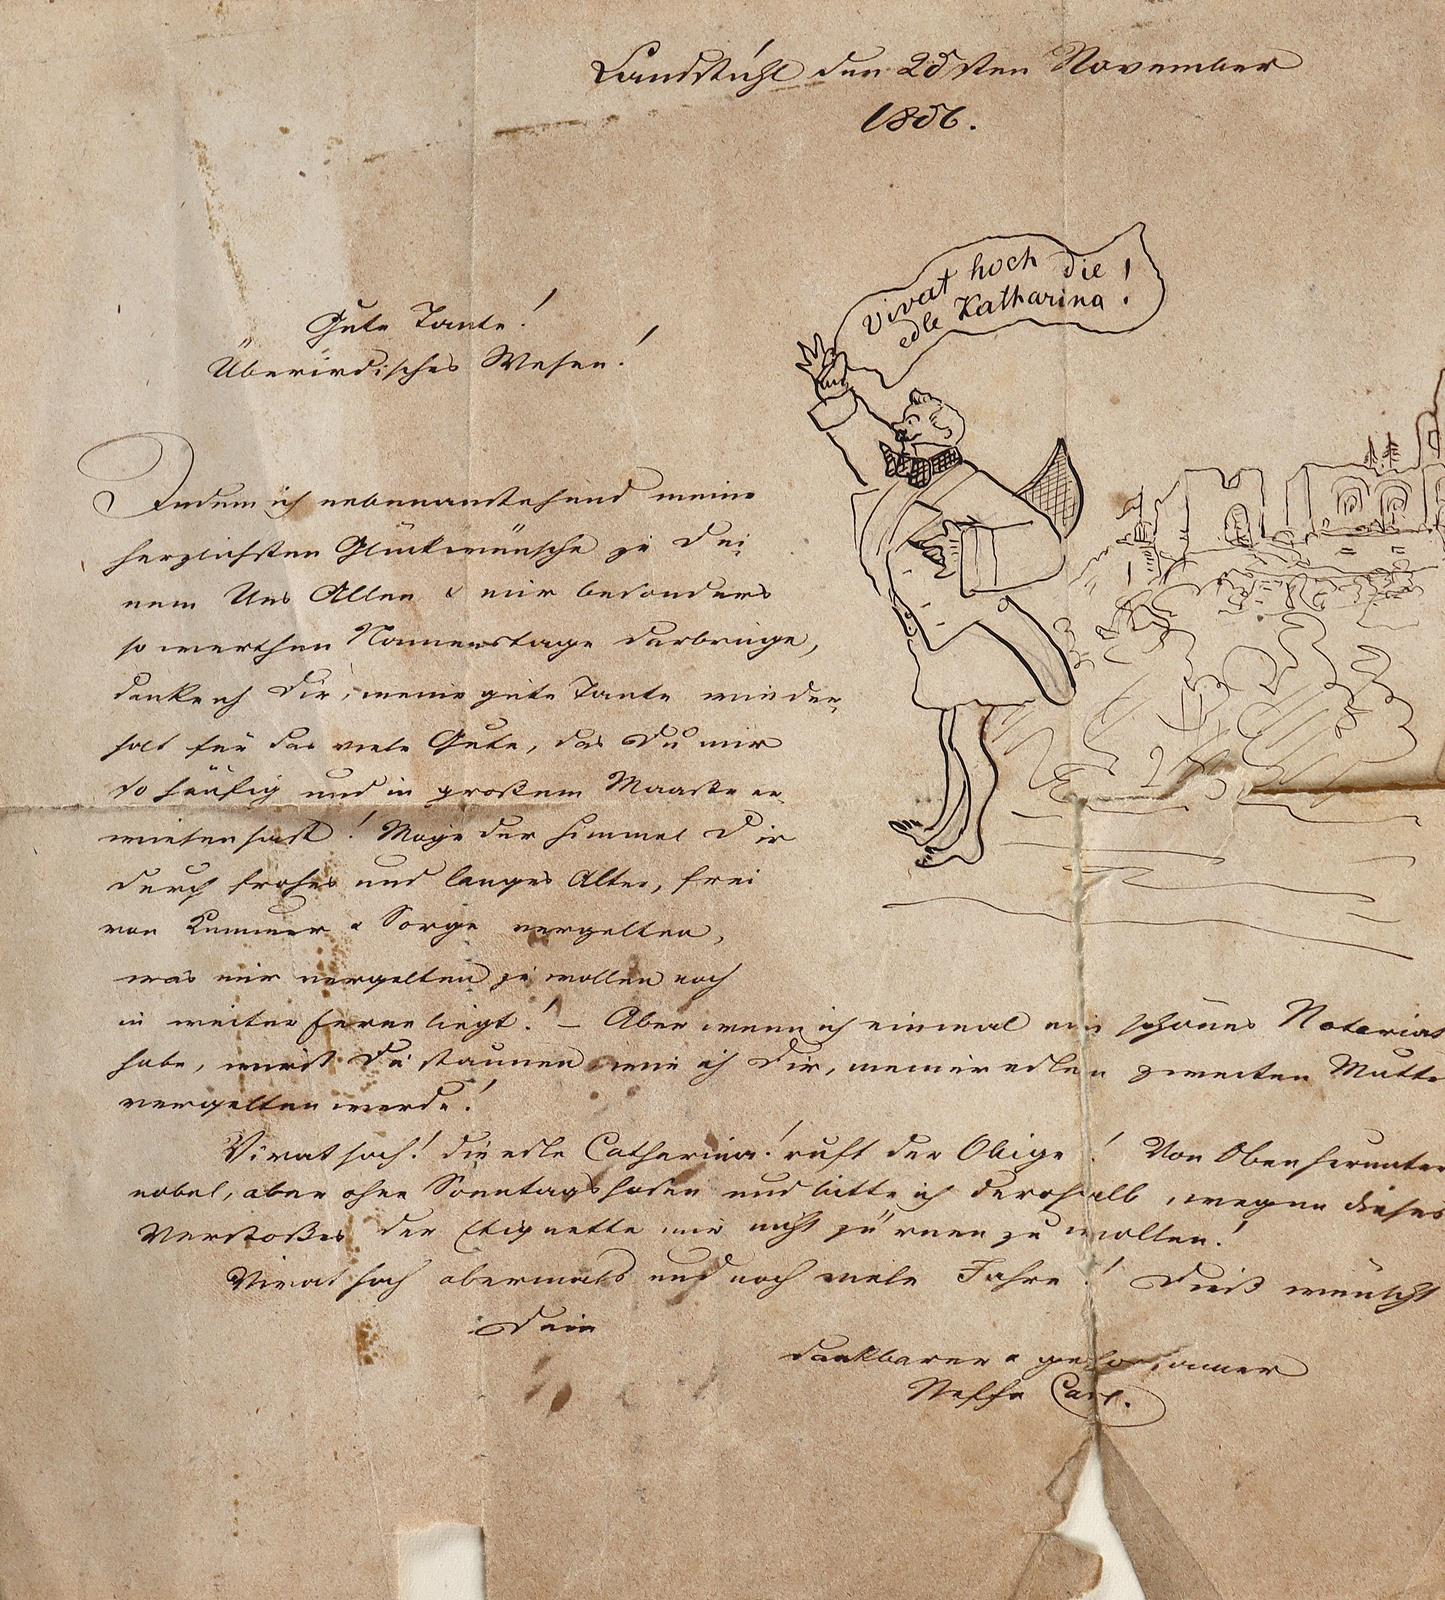 Landstuhl den 25sten November
1856.
Vivat hoch die
edle Katharina!
Gute Tante!
Überirdisches Wesen!
Indem ich nebenanstehend meine
herzlichsten Glückwünsche zu Dei
nem Uns Allen & mir besonders
so werthen Namenstage darbringe,
danke ich Dir, meine gute Tante wieder
holt für das viele Gute, das Du mir
so häufig und in großem Maaße er
wiesen hast! Möge der Himmel Dir
durch frohes und langes Alter, frei
von Kummer & Sorge vergelten,
was mir vergelten zu wollen noch
in weiter Ferne liegt! – Aber wenn ich einmal ein schönes Notariat
habe, wirst Du staunen wie ich Dir, meiner edlen zweiten Mutte
vergelten werde!
Vivat hoch! die edle Catharina! ruft der Obige! Von Oben herunter
nobel, aber ohne Sonntagshosen und bitte ich deroshalb, wegen dieses
Verstoßes der Etiquette mir nicht zürnen zu wollen!
Vivat hoch abermals und noch viele Jahre! Dieß wünscht
Dein
dankbarer & gehorsamer
Neffe Carl.